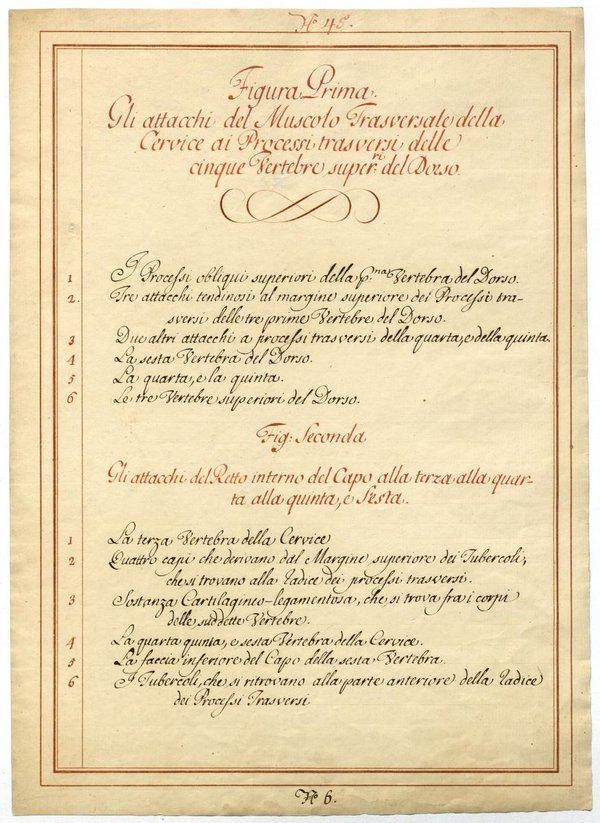 N.º 48.
Figura Prima.
Gli attacchi del Muscolo Trasversale della
Cervice ai Processi trasversi delle
cinque Vertebre super.ri del Dorso.
1 I Processi obliqui superiori della p.ma Vertebra del Dorso.
2. Tre attacchi tendinosi al margine superiore dei Processi tra-
sversi delle tre prime Vertebre del Dorso.
3 Due altri attacchi a processi trasversi della quarta, e della quinta.
4 La sesta Vertebra del Dorso.
5 La quarta, e la quinta.
6 Le tre Vertebre superiori del Dorso.
Fig: Seconda
Gli attacchi del Retto interno del Capo alla terza alla quar-
ta alla quinta, e Sesta.
1 La terza Vertebra della Cervice
2 Quattro capi che derivano dal Margine superiore dei Tubercoli,
che si trovano alla Radice dei processi trasversi.
3 Sostanza Cartilagineo-legamentosa, che si trova fra i corpi
delle suddette Vertebre.
4 La quarta quinta, e sesta Vertebra della Cervice.
5 La faccia inferiore del Capo della sesta Vertebra.
6 I Tubercoli, che si ritrovano alla parte anteriore della Radice
dei Processi Trasversi
N.º 6.